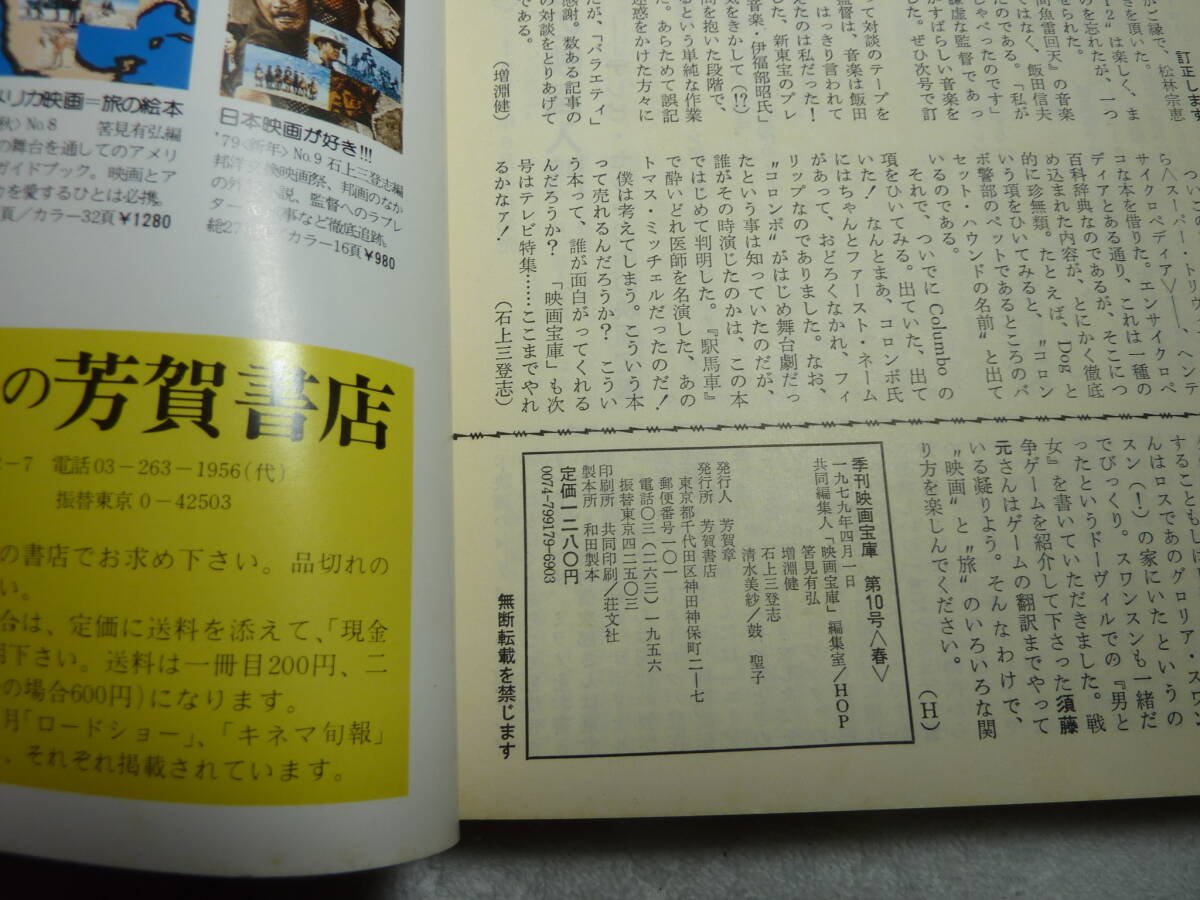 訂正します
がご縁で、松林宗恵
きを頂いた。
12"は楽しく、ま
のを忘れたが、一つ
せられた。
間魚雷回天』の音楽
ではなく、飯田信夫
たのである。「私が
しゃべったのです」
謙虚な監督であっ
かすばらしい音楽を
した。ぜひ次号で訂
って対談のテープを
監督は、音楽は飯田
、はっきり言われて
えたのは私だった！
した、新東宝のプレ
音楽・伊福部昭氏」
気をきかして（!?）
問を抱いた段階で、
るという単純な作業
た。あらためて誤記
迷惑をかけた方々に
だが、「バラエティ」
感謝。数ある記事の
の対談をとりあげて
である。
（増淵健）
ら〈スーパー・トリヴィ
サイクロペディア〉――、ヘンテ
コな本を借りた。エンサイクロペ
ディアとある通り、これは一種の
百科辞典なのであるが、そこにつ
め込まれた内容が、とにかく徹底
的に珍無類。たとえば、Dog と
いう項をひいてみると、"コロン
ボ警部のペットであるところのバ
セット・ハウンドの名前"と出て
いるのである。
それで、ついでに Columbo の
項をひいてみる。出ていた、出て
いた！　なんとまあ、コロンボ氏
にはちゃんとファースト・ネーム
があって、おどろくなかれ、フィ
リップなのでありました。なお、
"コロンボ"がはじめ舞台劇だっ
たという事は知っていたのだが、
誰がその時演じたのかは、この本
ではじめて判明した。『駅馬車』
で酔いどれ医師を名演した、あの
トマス・ミッチェルだったのだ！
僕は考えてしまう。こういう本
って売れるんだろうか？　こうい
う本って、誰が面白がってくれる
んだろうか？　「映画宝庫」も次
号はテレビ特集……ここまでやれ
るかなァ！
（石上三登志）
ることもしけし
んはロスであのグロリア・スワン
スン（！）の家にいたというの
でびっくり。スワンスンも一緒だ
ったというドーヴィルでの『男と
女』を書いていただきました。戦
争ゲームを紹介して下さった須藤
元さんはゲームの翻訳までやって
いる凝りよう。そんなわけで、
"映画"と"旅"のいろいろな関
り方を楽しんでください。
（H）
季刊映画宝庫　第10号〈春〉
一九七九年四月一日
共同編集人「映画宝庫」編集室／HOP
筈見有弘
増淵健
石上三登志
清水美紗／鼓　聖子
発行人　芳賀章
発行所　芳賀書店
東京都千代田区神田神保町二ー七
郵便番号一〇一
電話〇三（二六三）一九五六
振替東京四二五〇三
印刷所　共同印刷／荘文社
製本所　和田製本
定価一二八〇円
0074-799179-6903
無断転載を禁じます
メリカ映画＝旅の絵本
秋〉No.8　筈見有弘編
の舞台を通してのアメリ
ガイドブック。映画とア
カを愛するひとは必携。
頁／カラー32頁¥1280
日本映画が好き!!!
'79〈新年〉No.9 石上三登志編
カラー16頁¥980
の芳賀書店
2−7　電話03−263−1956(代)
振替東京 0−42503
の書店でお求め下さい。品切れの
い。
合は、定価に送料を添えて、「現金
用下さい。送料は一冊目200円、二
の場合600円)になります。
月「ロードショー」、「キネマ旬報」
、それぞれ掲載されています。